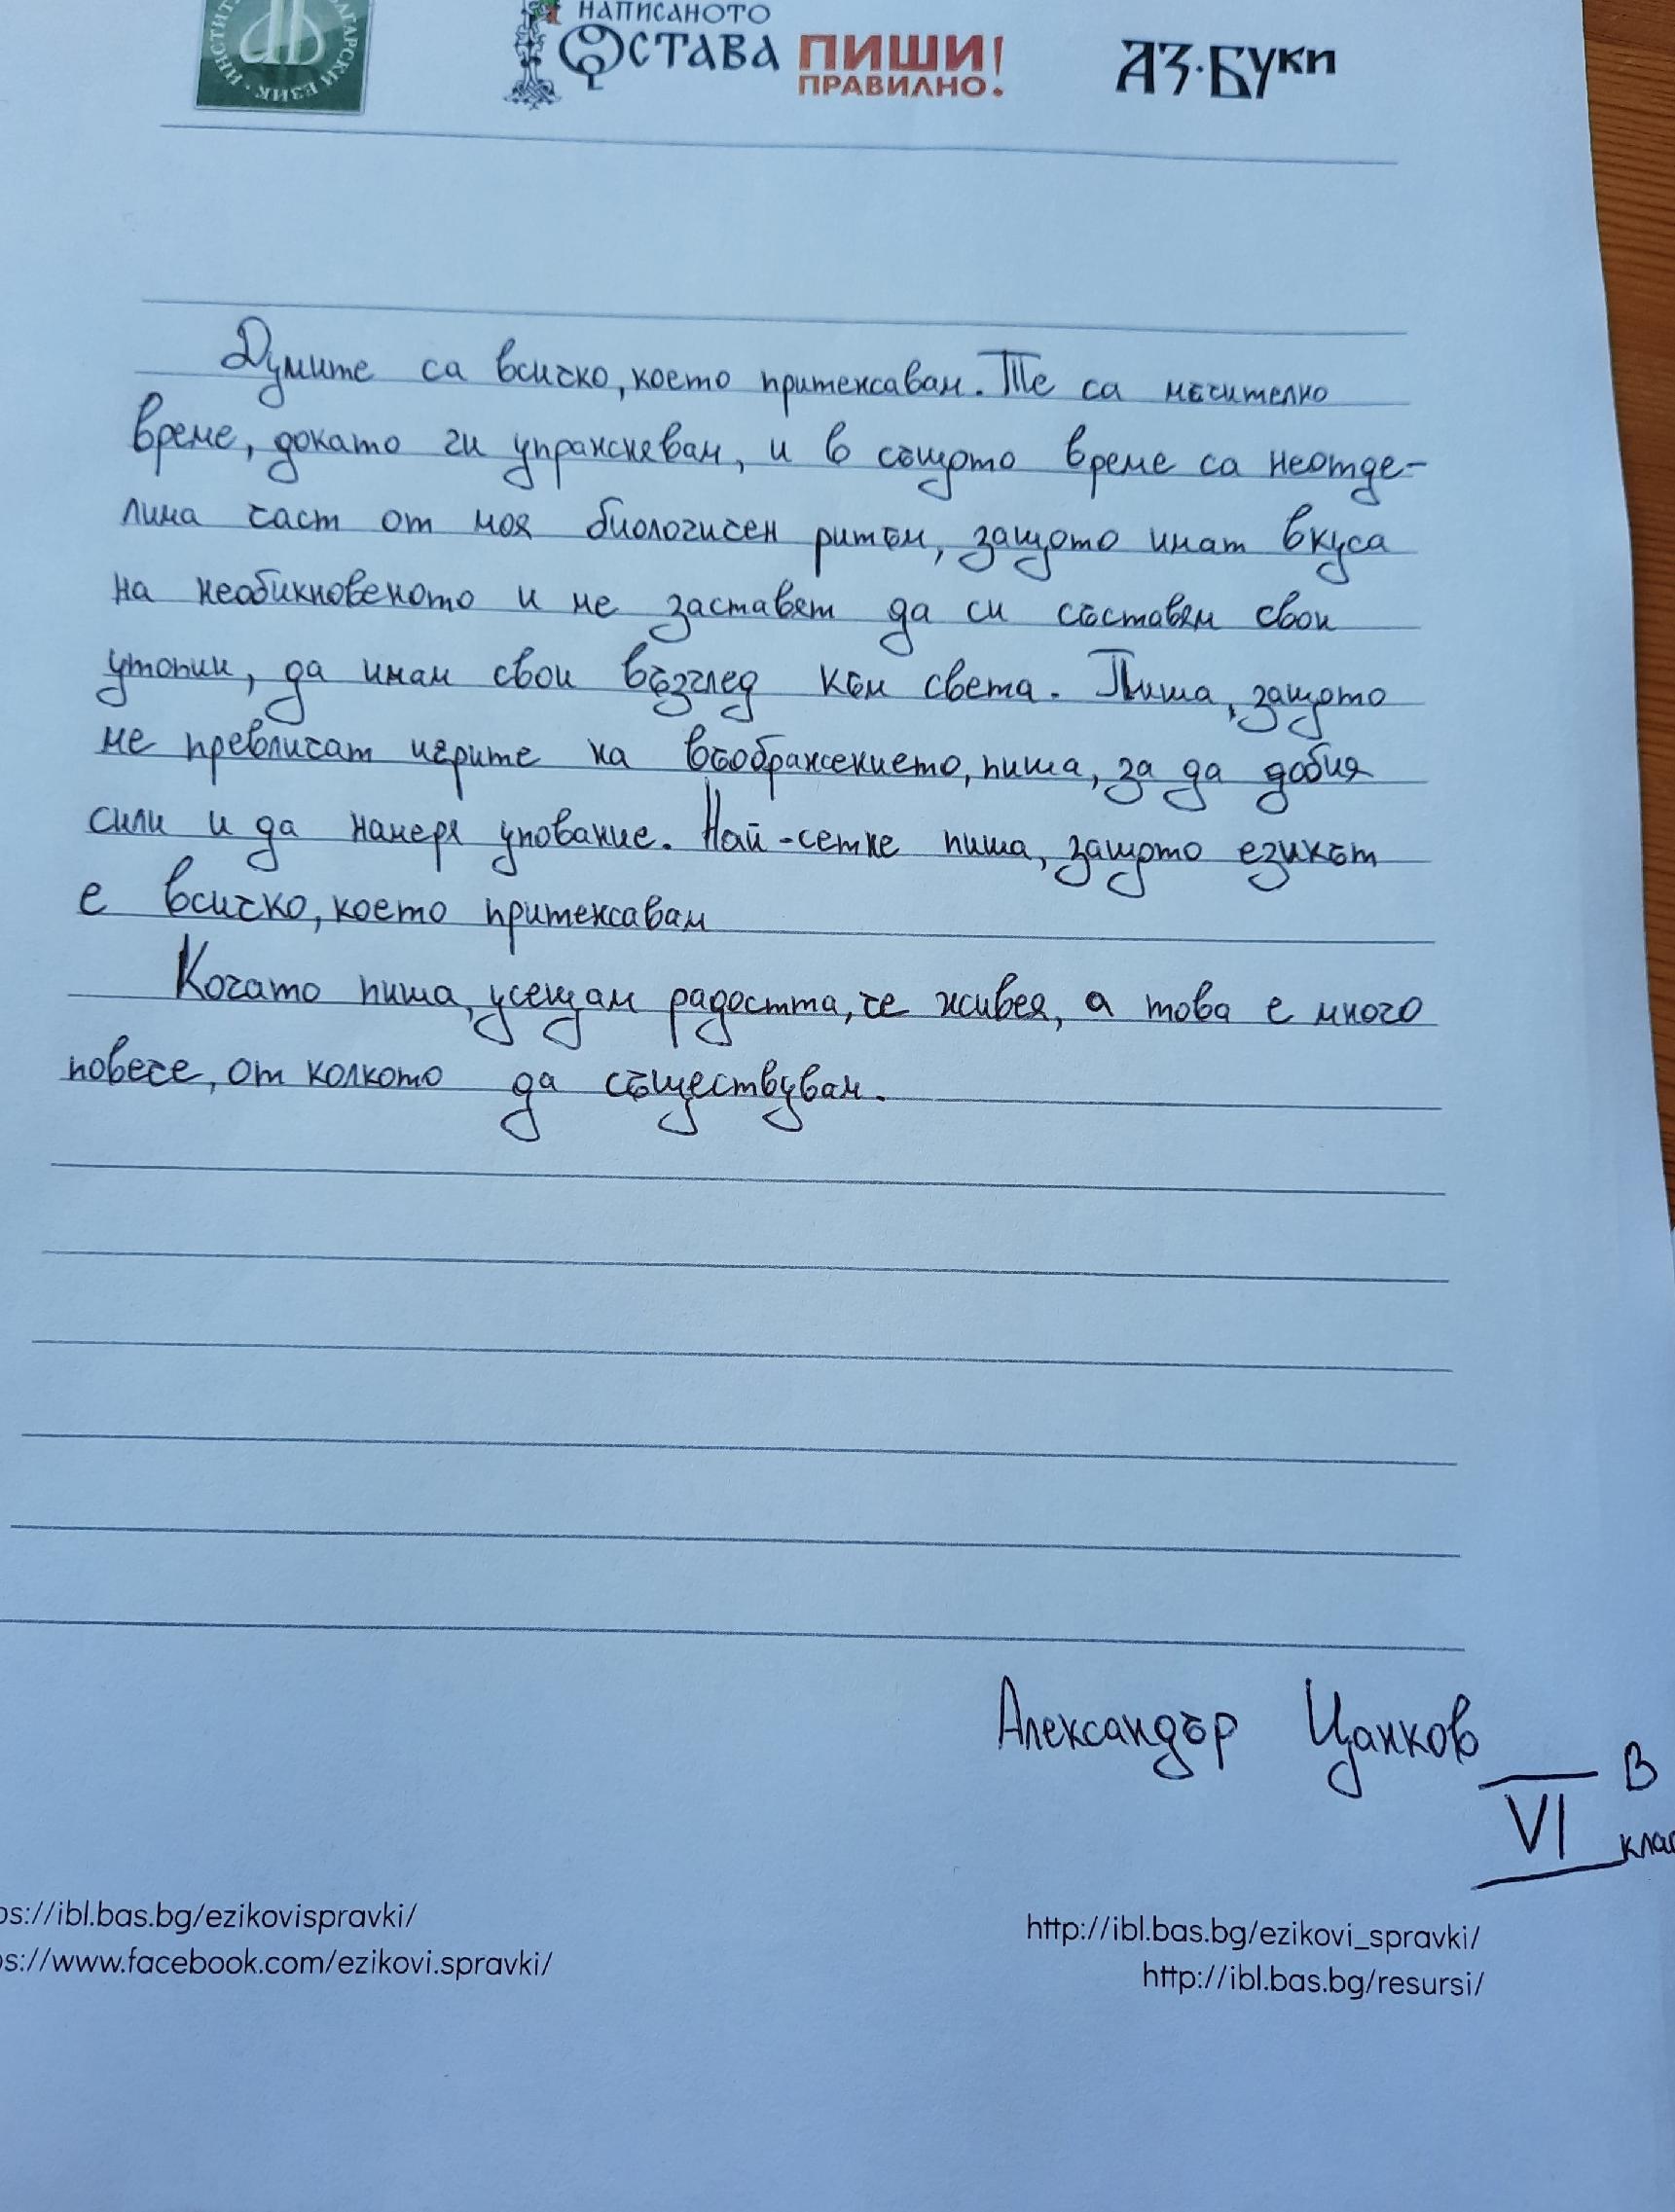 НАПИСАНОТО
ОСТАВА ПИШИ!
ПРАВИЛНО.
АЗ·БУКИ
Думите са всичко, което притежавам. Те са мъчително
време, докато ги упражневам, и в същото време са неотде-
лима част от моя биологичен ритъм, защото имат вкуса
на необикновеното и ме заставят да си съставям свои
утопии, да имам свои възглед към света. Пиша, защото
ме превличат игрите на въображението, пиша, за да добия
сили и да намеря упование. Най-сетне пиша, защото езикът
е всичко, което притежавам
Когато пиша, усещам радостта, че живея, а това е много
повече, от колкото да съществувам.
Александър Цанков
VI В
клас
ps://ibl.bas.bg/ezikovispravki/
ps://www.facebook.com/ezikovi.spravki/
http://ibl.bas.bg/ezikovi_spravki/
http://ibl.bas.bg/resursi/